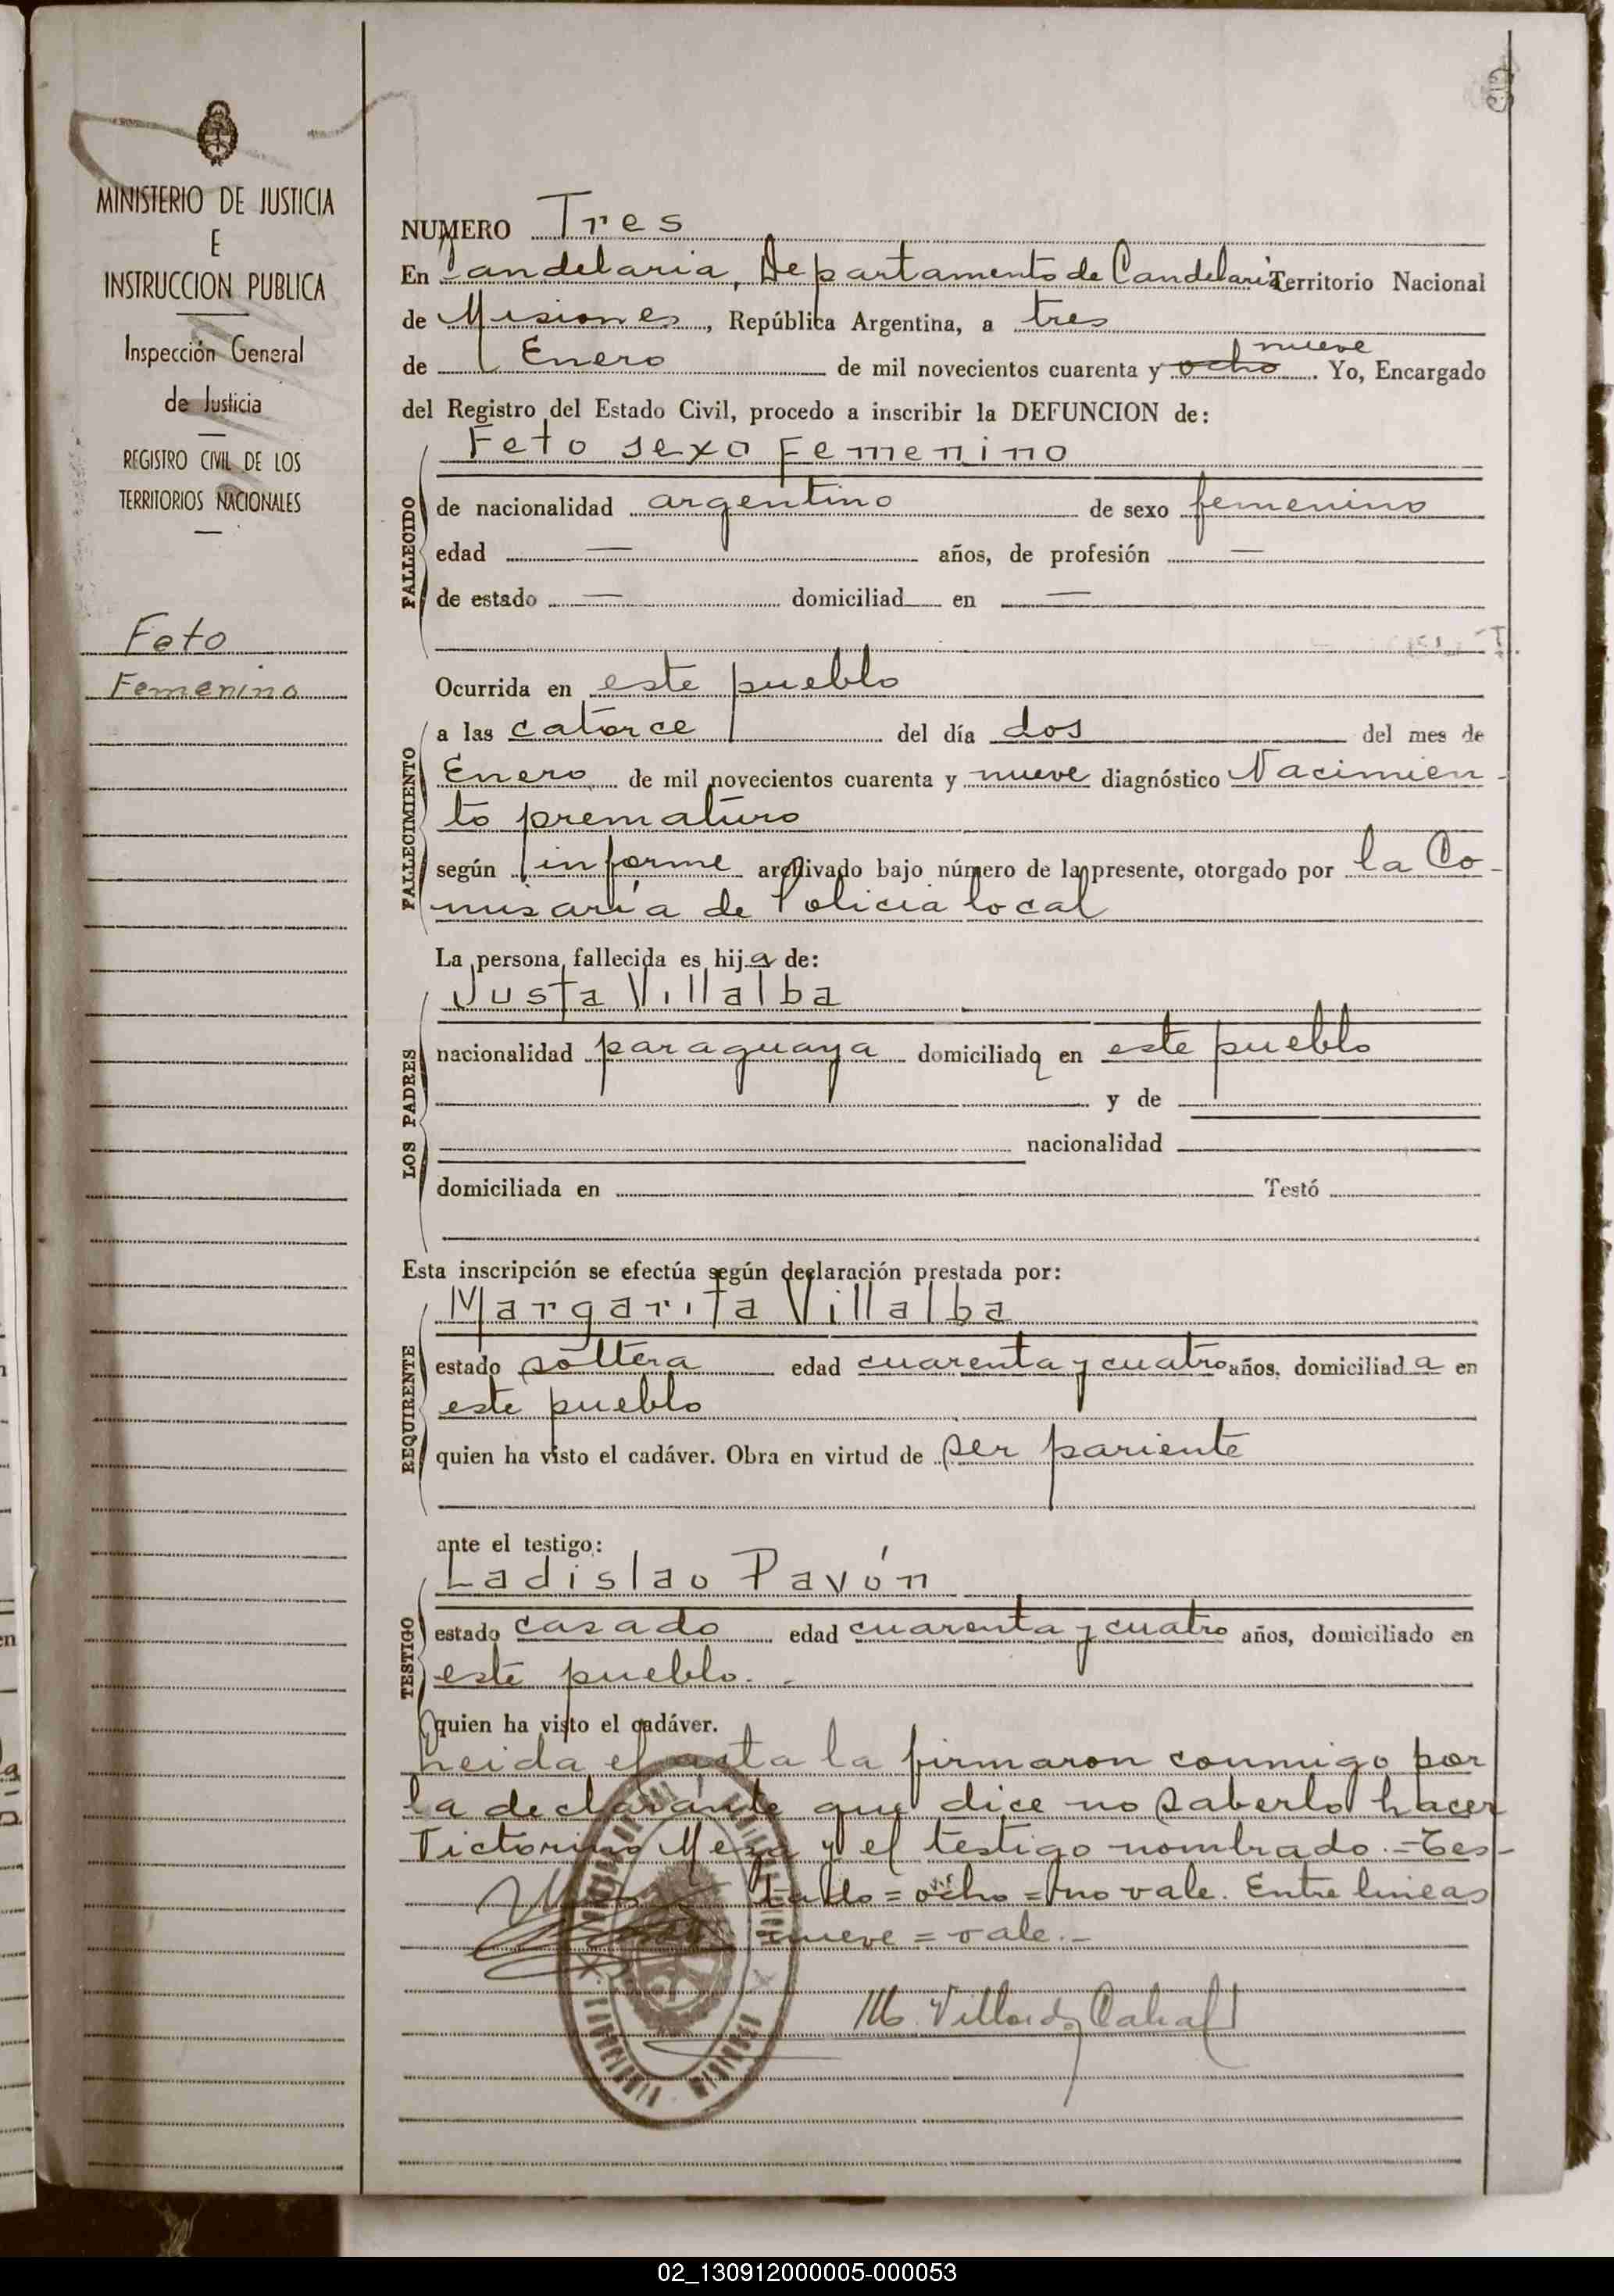 MINISTERIO DE JUSTICIA
E
INSTRUCCION PUBLICA
Inspección General
de Justicia
REGISTRO CIVIL DE LOS
TERRITORIOS NACIONALES
Feto
Femenino
NUMERO Tres
En Candelaria, Departamento de Candelaria Territorio Nacional
de Misiones, República Argentina, a tres
nueve
de Enero de mil novecientos cuarenta y ocho. Yo, Encargado
del Registro del Estado Civil, procedo a inscribir la DEFUNCION de:
Feto sexo Femenino
FALLECIDO
de nacionalidad argentino de sexo femenino
edad — años, de profesión —
de estado — domiciliad en —
Ocurrida en este pueblo
FALLECIMIENTO
a las catorce del día dos del mes de
Enero de mil novecientos cuarenta y nueve diagnóstico Nacimien-
to prematuro
según informe archivado bajo número de la presente, otorgado por la Co-
misaría de Policia local
La persona fallecida es hija de:
LOS PADRES
Justa Villalba
nacionalidad paraguaya domiciliada en este pueblo
y de
nacionalidad
domiciliada en Testó
Esta inscripción se efectúa según declaración prestada por:
REQUIRENTE
Margarita Villalba
estado soltera edad cuarenta y cuatro años, domiciliada en
este pueblo
quien ha visto el cadáver. Obra en virtud de ser pariente
ante el testigo:
TESTIGO
Ladislao Pavón
estado casado edad cuarenta y cuatro años, domiciliado en
este pueblo.-
quien ha visto el cadáver.
Leida el acta la firmaron conmigo por
la declarante que dice no saberlo hacer
Victorino Meza y el testigo nombrado.=Tes-
tado=ocho=no vale. Entre lineas
=nueve=vale.-
02_130912000005-000053